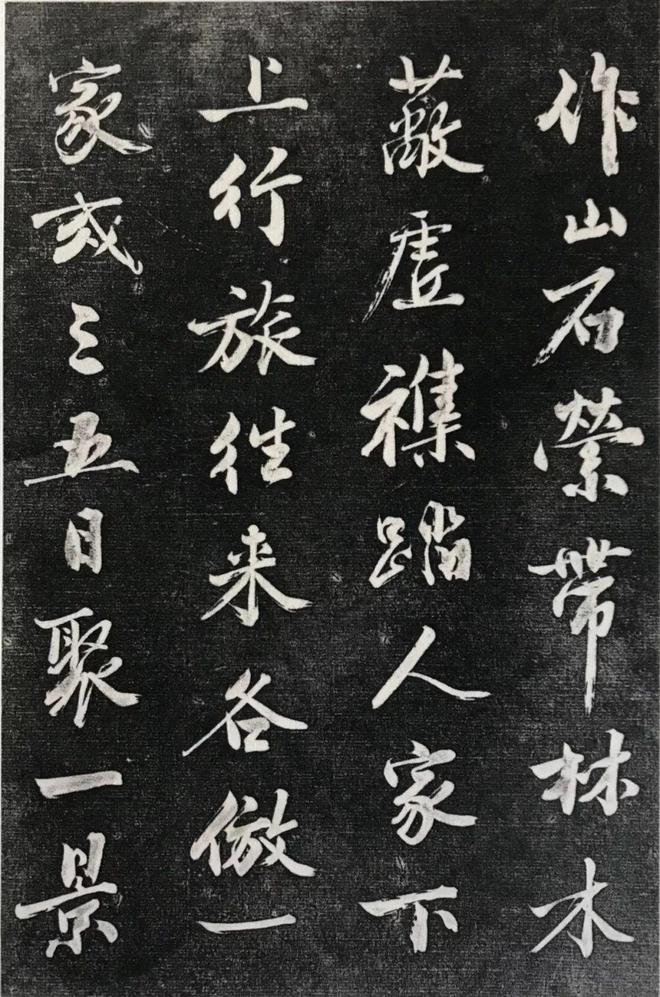 作山石萦带林木
蔽虚襍踏人家下
上行旅往来各倣一
家或三五日聚一景